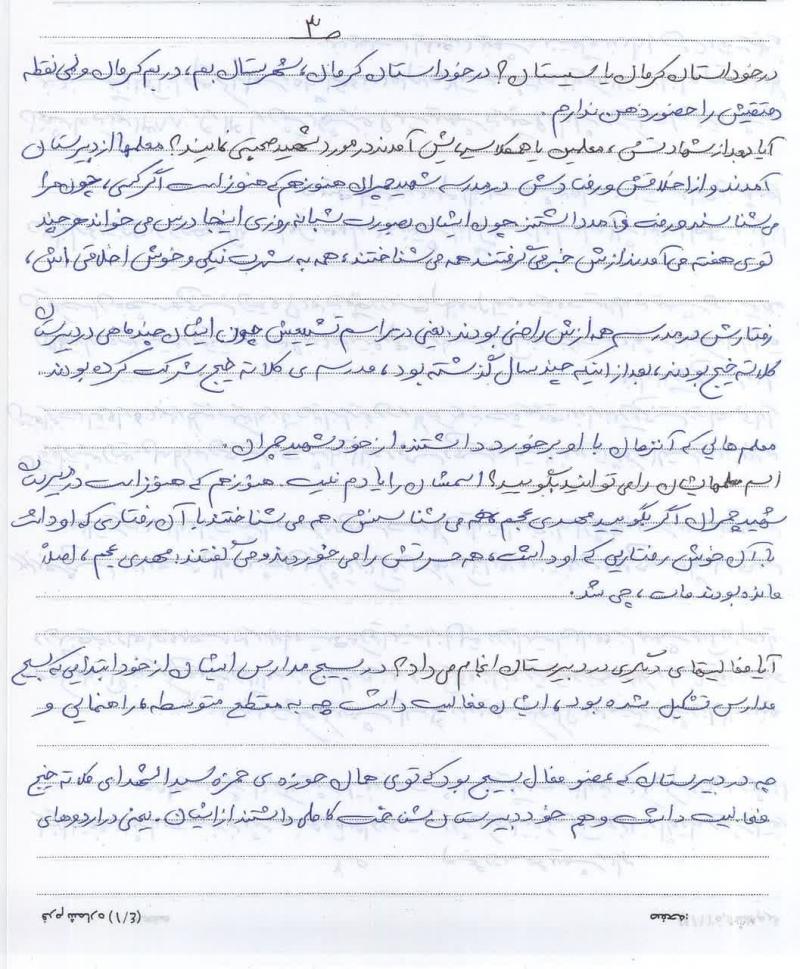 ص ۳
در خود استان کرمان یا سیستان؟ در خود استان کرمان، شهرستان بم، در بم کرمان ولی نقطه
دقیقش را حضور ذهن ندارم.
آیا بعد از شهادتش، معلمین یا همکلاسیهایش آمدند در مورد شهید صحبتی نمایند؟ معلمها از دبیرستان
آمدند و از اخلاقش و رفتارش در مدرسه شهید چمران هنوز هم که هنوز است اگر کسی، چون مرا
می‌شناسند و رفت و آمد داشتند چون ایشان بصورت شبانه روزی اینجا درس می خواند هر چند
توی هفته می آمدند ازش خبر می گرفتند همه می شناختند، همه به شهرت نیکی و خوش اخلاقی اش،
رفتارش در مدرسه همه ازش راضی بودند. یعنی در مراسم تشییعش چون ایشان چند ماهی در دبیرستان
کلاته خیج بودند، بعد از اینکه چند سال گذشته بود، مدرسه ی کلاته خیج شرکت کرده بودند.
معلم هایی که آنزمان با او برخورد داشتند از خود شهید چمران.
اسم معلمهایشان را می توانید بگویید؟ اسمشان را یادم نیست. هنوز هم که هنوز است در دبیرستان
شهید چمران اگر بگویید مهدی عجم همه می شناسنش. هم می شناختند با آن رفتاری که او داشت
با آن خوش رفتاریی که او داشت، همه حسرتش را می خوردند و می گفتند: مهدی عجم، اصلاً
مانده بودند مات، چی شد.
آیا فعالیتهای دیگری در دبیرستان انجام می داد؟ در بسیج مدارس ایشان از خود ابتدایی که بسیج
مدارس تشکیل شده بود، ایشان فعالیت داشت چه به مقطع متوسطه، راهنمایی و
چه در دبیرستان که عضو فعال بسیج بود که توی همان حوزه ی حمزه سیدالشهدای کلاته خیج
فعالیت داشت و هم خود دبیرستان شناخت کاملی داشتند از ایشان. یعنی در اردوهای
صفحه:
فرم شماره (۴/۱)